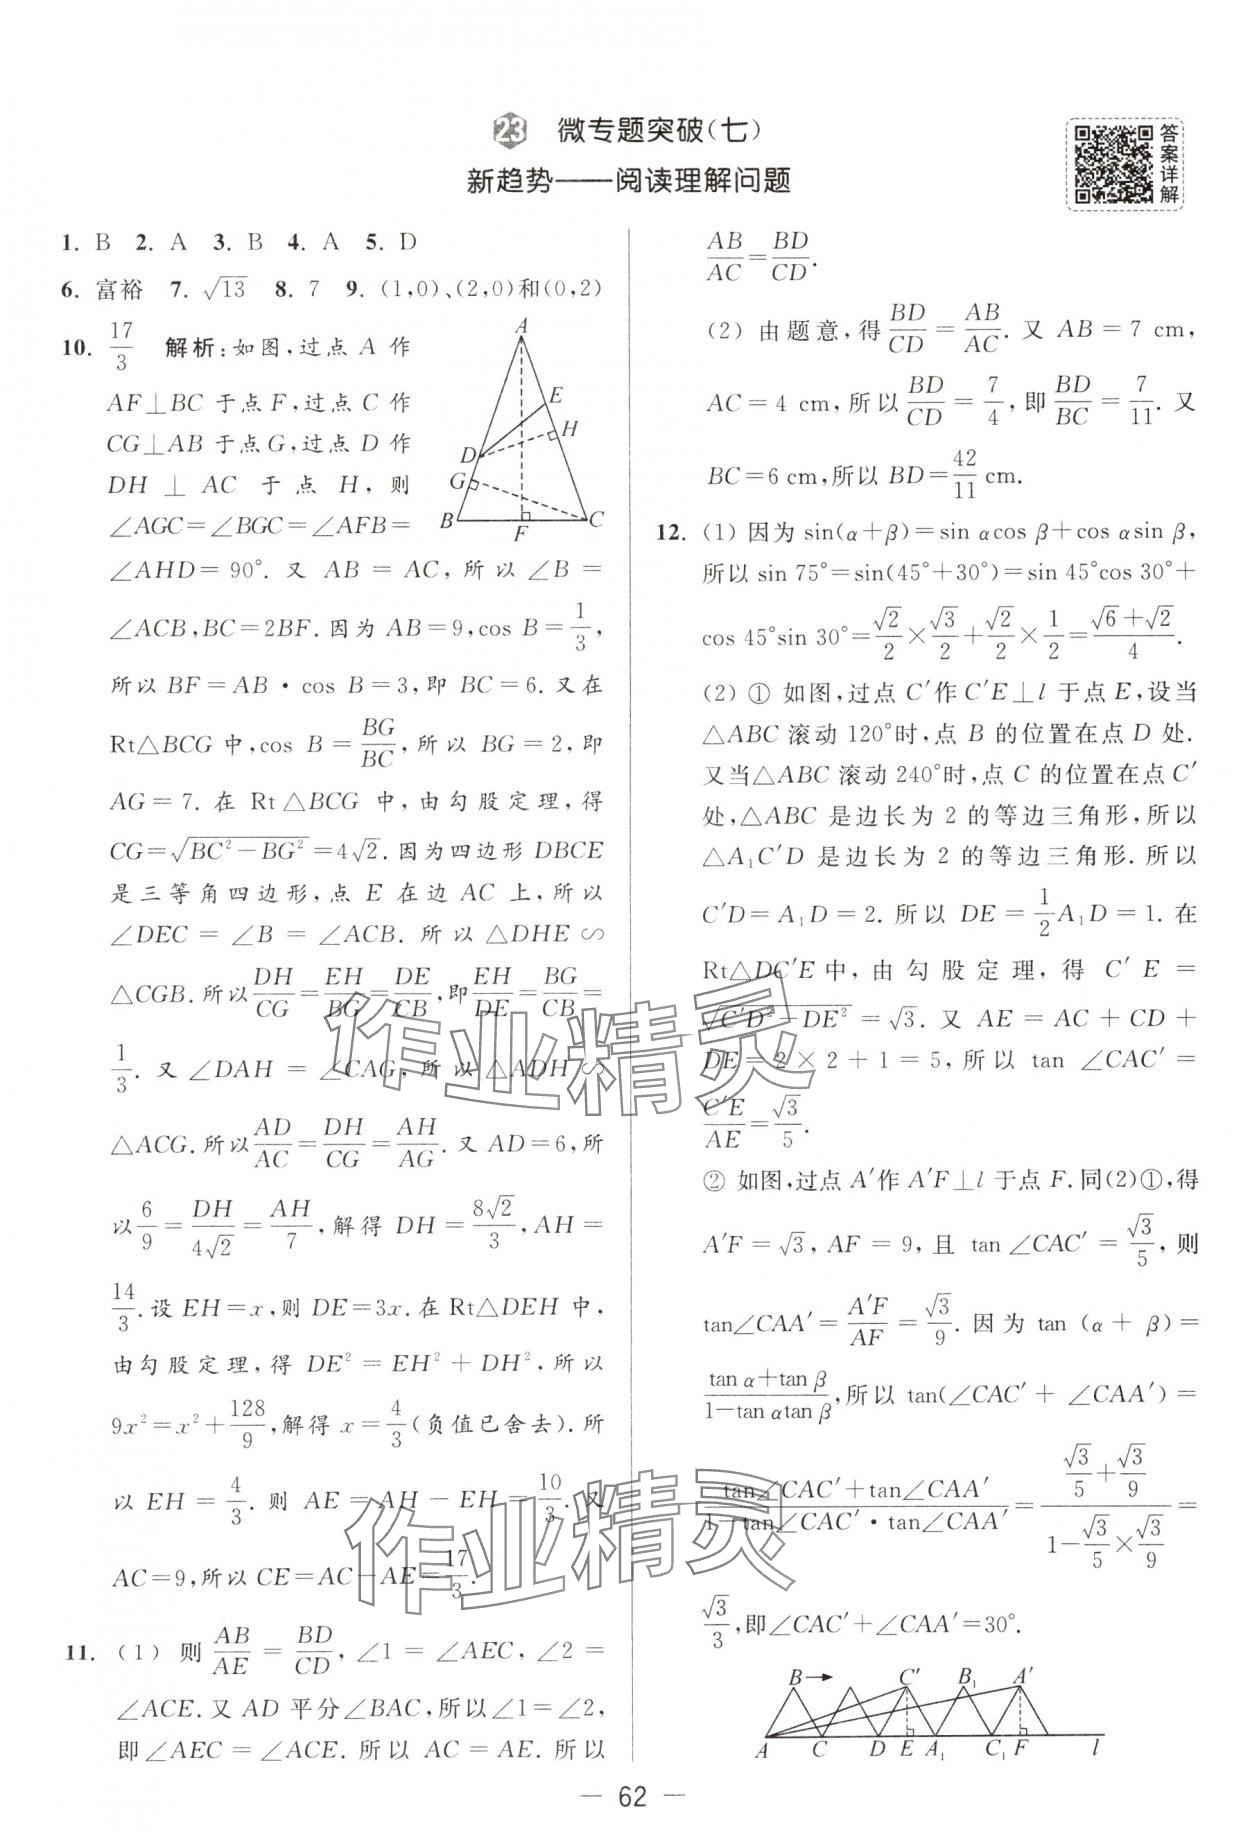 23 微专题突破(七)
新趋势——阅读理解问题
答案详解
1. B 2. A 3. B 4. A 5. D
6. 富裕 7. √13 8. 7 9. (1,0)、(2,0)和(0,2)
10. 17/3 解析:如图,过点 A 作
AF⊥BC 于点 F,过点 C 作
CG⊥AB 于点 G,过点 D 作
DH ⊥ AC 于点 H,则
∠AGC=∠BGC=∠AFB=
∠AHD=90°. 又 AB=AC,所以∠B=
∠ACB,BC=2BF.因为 AB=9,cos B=1/3,
所以 BF=AB·cos B=3,即 BC=6.又在
Rt△BCG 中,cos B=BG/BC,所以 BG=2,即
AG=7. 在 Rt△BCG 中,由勾股定理,得
CG=√(BC²-BG²)=4√2.因为四边形 DBCE
是三等角四边形,点 E 在边 AC 上,所以
∠DEC=∠B=∠ACB. 所以△DHE∽
△CGB.所以DH/CG=EH/BG=DE/CB,即EH/DE=BG/CB=
1/3. 又∠DAH=∠CAG,所以△ADH∽
△ACG.所以AD/AC=DH/CG=AH/AG.又 AD=6,所
以6/9=DH/4√2=AH/7,解得 DH=8√2/3,AH=
14/3.设 EH=x,则 DE=3x.在 Rt△DEH 中,
由勾股定理,得 DE²=EH²+DH².所以
9x²=x²+128/9,解得 x=4/3(负值已舍去).所
以 EH=4/3. 则 AE=AH-EH=10/3. 又
AC=9,所以 CE=AC-AE=17/3.
11. (1) 则 AB/AE=BD/CD,∠1=∠AEC,∠2=
∠ACE.又 AD 平分∠BAC,所以∠1=∠2,
即∠AEC=∠ACE.所以 AC=AE.所以
A
E
H
D
G
B
F
C
AB/AC=BD/CD.
(2) 由题意,得BD/CD=AB/AC. 又 AB=7 cm,
AC=4 cm,所以BD/CD=7/4,即BD/BC=7/11. 又
BC=6 cm,所以 BD=42/11 cm.
12. (1) 因为 sin(α+β)=sin αcos β+cos αsin β,
所以 sin 75°=sin(45°+30°)=sin 45°cos 30°+
cos 45°sin 30°=√2/2×√3/2+√2/2×1/2=(√6+√2)/4.
(2) ① 如图,过点 C′作 C′E⊥l 于点 E,设当
△ABC 滚动 120°时,点 B 的位置在点 D 处.
又当△ABC 滚动 240°时,点 C 的位置在点 C′
处,△ABC 是边长为 2 的等边三角形,所以
△A₁C′D 是边长为 2 的等边三角形.所以
C′D=A₁D=2. 所以 DE=1/2A₁D=1. 在
Rt△DC′E 中,由勾股定理,得 C′E=
√(C′D²-DE²)=√3. 又 AE=AC+CD+
DE=2×2+1=5,所以 tan∠CAC′=
C′E/AE=√3/5.
② 如图,过点 A′作 A′F⊥l 于点 F.同(2)①,得
A′F=√3,AF=9,且 tan∠CAC′=√3/5,则
tan∠CAA′=A′F/AF=√3/9. 因为 tan(α+β)=
(tan α+tan β)/(1-tan αtan β),所以 tan(∠CAC′+∠CAA′)=
(tan∠CAC′+tan∠CAA′)/(1-tan∠CAC′·tan∠CAA′)=(√3/5+√3/9)/(1-√3/5×√3/9)=
√3/3,即∠CAC′+∠CAA′=30°.
B C′ B₁ A′
A C D E A₁ C₁ F l
作业精灵
作业精灵
— 62 —